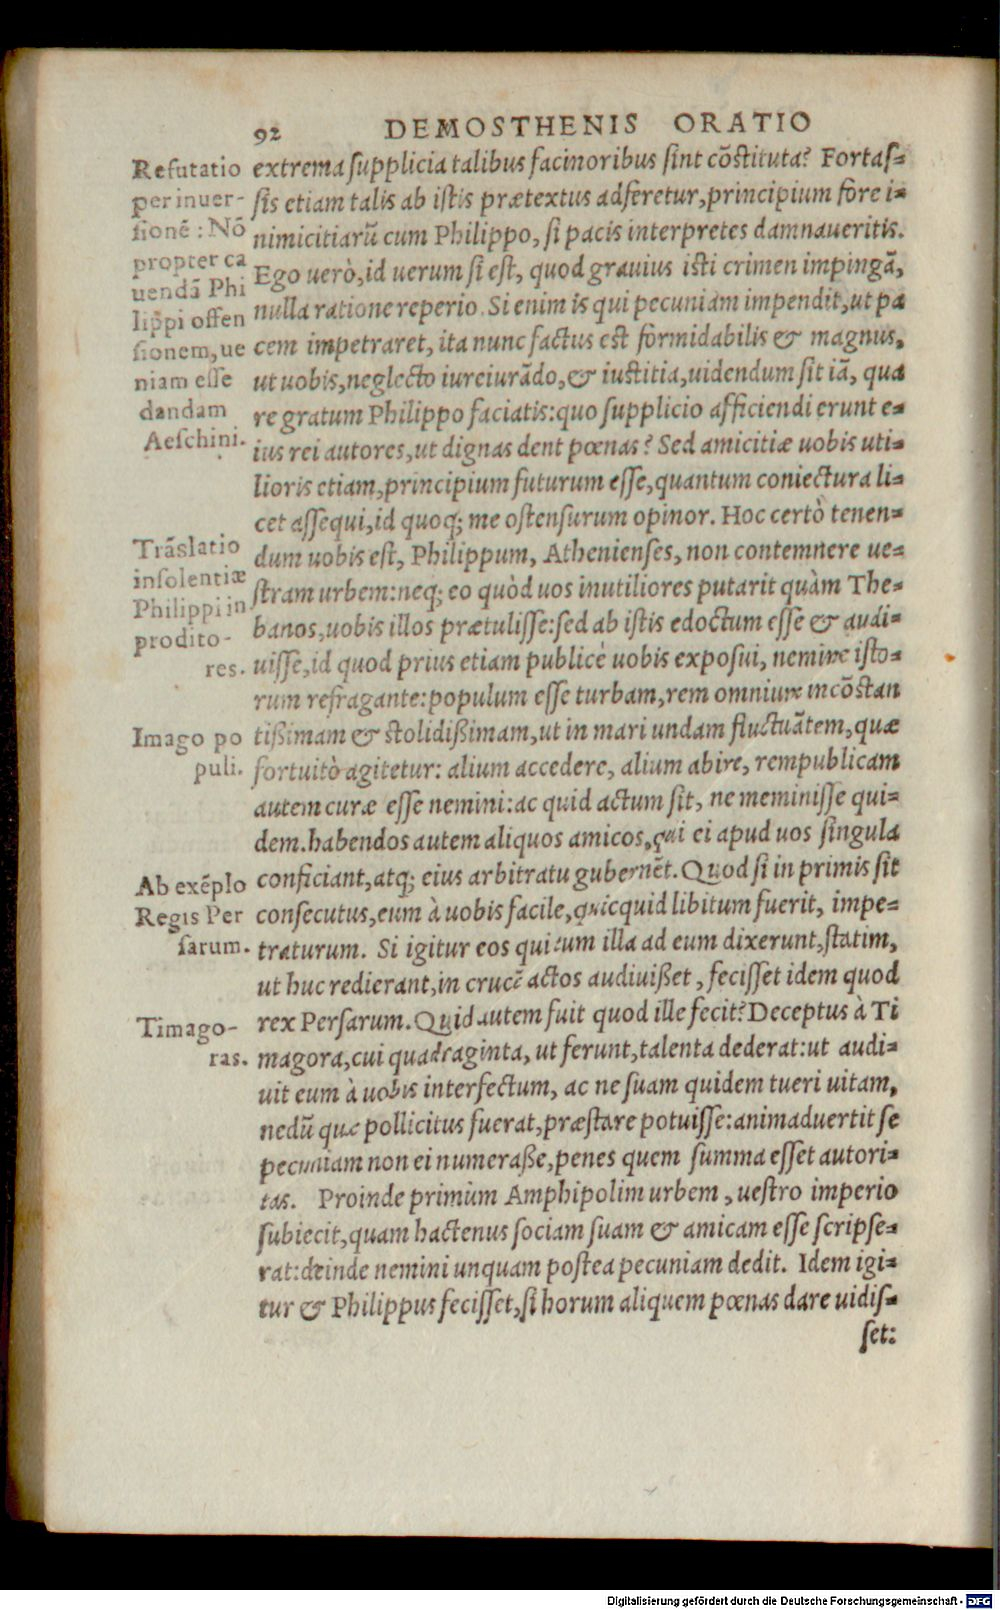 92 DEMOSTHENIS ORATIO
Refutatio
per inuer-
sionē: Nō
propter ca
uendā Phi
lippi offen
sionem, ue
niam esse
dandam
Aeschini.
Trāslatio
insolentiæ
Philippi in
prodito-
res.
Imago po
puli.
Ab exēplo
Regis Per
sarum.
Timago-
ras.
extrema supplicia talibus facinoribus sint cōstituta? Fortas-
sis etiam talis ab istis prætextus adferetur, principium fore i-
nimicitiarū cum Philippo, si pacis interpretes damnaueritis.
Ego uerò, id uerum si est, quod grauius isti crimen impingā,
nulla ratione reperio. Si enim is qui pecuniam impendit, ut pa
cem impetraret, ita nunc factus est formidabilis & magnus,
ut uobis, neglecto iureiurādo, & iustitia, uidendum sit iā, qua
re gratum Philippo faciatis: quo supplicio afficiendi erunt e-
ius rei autores, ut dignas dent pœnas? Sed amicitiæ uobis uti-
lioris etiam, principium futurum esse, quantum coniectura li-
cet assequi, id quoq; me ostensurum opinor. Hoc certò tenen-
dum uobis est, Philippum, Athenienses, non contemnere ue-
stram urbem: neq; eo quòd uos inutiliores putarit quàm The-
banos, uobis illos prætulisse: sed ab istis edoctum esse & audi-
uisse, id quod prius etiam publicè uobis exposui, nemine isto-
rum refragante: populum esse turbam, rem omnium incōstan
tißimam & stolidißimam, ut in mari undam fluctuātem, quæ
fortuitò agitetur: alium accedere, alium abire, rempublicam
autem curæ esse nemini: ac quid actum sit, ne meminisse qui-
dem. habendos autem aliquos amicos, qui ei apud uos singula
conficiant, atq; eius arbitratu gubernēt. Quod si in primis sit
consecutus, eum à uobis facile, quicquid libitum fuerit, impe-
traturum. Si igitur eos qui tum illa ad eum dixerunt, statim,
ut huc redierant, in crucē actos audiuißet, fecisset idem quod
rex Persarum. Quid autem fuit quod ille fecit? Deceptus à Ti
magora, cui quadraginta, ut ferunt, talenta dederat: ut audi-
uit eum à uobis interfectum, ac ne suam quidem tueri uitam,
nedū quæ pollicitus fuerat, præstare potuisse: animaduertit se
pecuniam non ei numeraße, penes quem summa esset autori-
tas. Proinde primùm Amphipolim urbem, uestro imperio
subiecit, quam hactenus sociam suam & amicam esse scripse-
rat: deinde nemini unquam postea pecuniam dedit. Idem igi-
tur & Philippus fecisset, si horum aliquem pœnas dare uidis-
set:
Digitalisierung gefördert durch die Deutsche Forschungsgemeinschaft - DFG